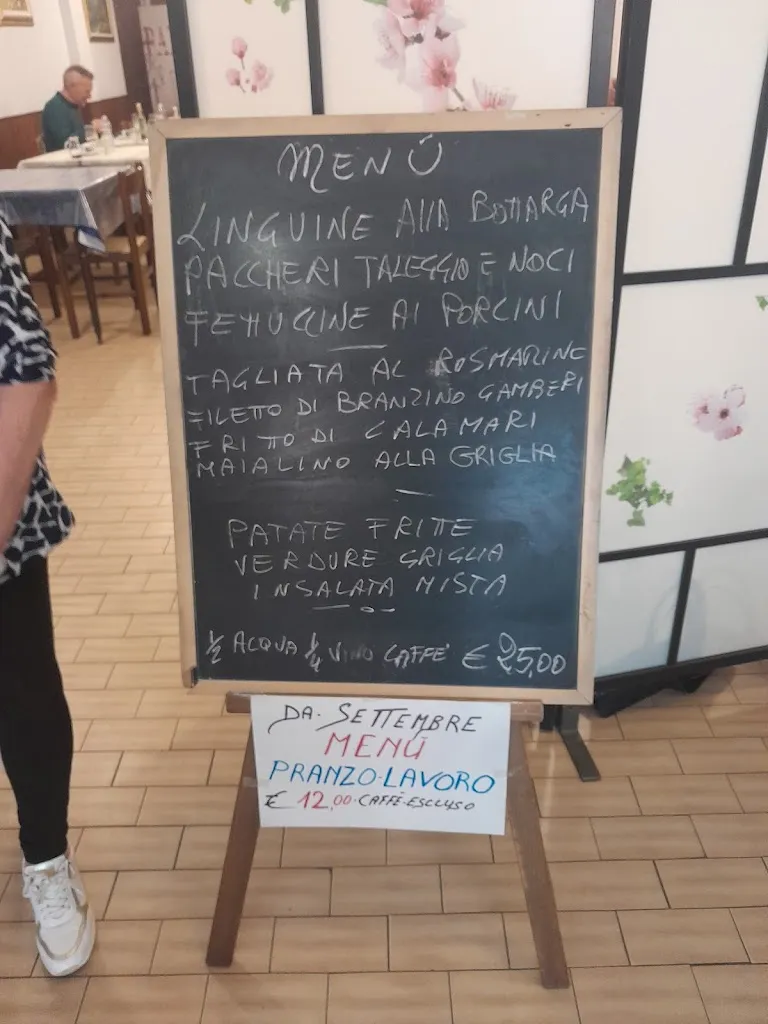 MENÙ
LINGUINE ALLA BOTTARGA
PACCHERI TALEGGIO E NOCI
FETTUCCINE AI PORCINI
TAGLIATA AL ROSMARINE
FILETTO DI BRANZINO GAMBERI
FRITTO DI CALAMARI
MAIALINO ALLA GRIGLIA
PATATE FRITTE
VERDURE GRIGLIA
INSALATA MISTA
½ ACQUA ¼ VINO CAFFE' € 25,00
DA SETTEMBRE
MENÙ
PRANZO-LAVORO
€ 12,00 CAFFÈ ESCLUSO